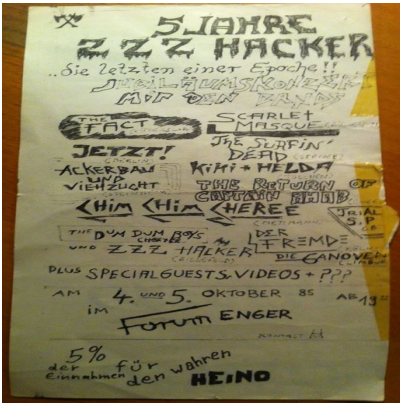 5 JAHRE
ZZZ HACKER
..die letzten einer Epoche!!
JUBILÄUMSKONZERT
MIT DEN BANDS
THE FACT
SCARLET MASQUE
JETZT!
THE SURFIN' DEAD
ACKERBAU UND VIEHZUCHT
KIKI + HELDA
THE RETURN OF CAPTAIN AHAB
CHIM CHIM CHEREE
TRIAL S.P.
THE DUM DUM BOYS
DER FREMDE
UND ZZZ HACKER
DIE GANOVEN
PLUS SPECIALGUESTS & VIDEOS + ???
AM 4. UND 5. OKTOBER 85 AB 19
IM Forum ENGER
KONTAKT
5% der einnahmen für den wahren HEINO